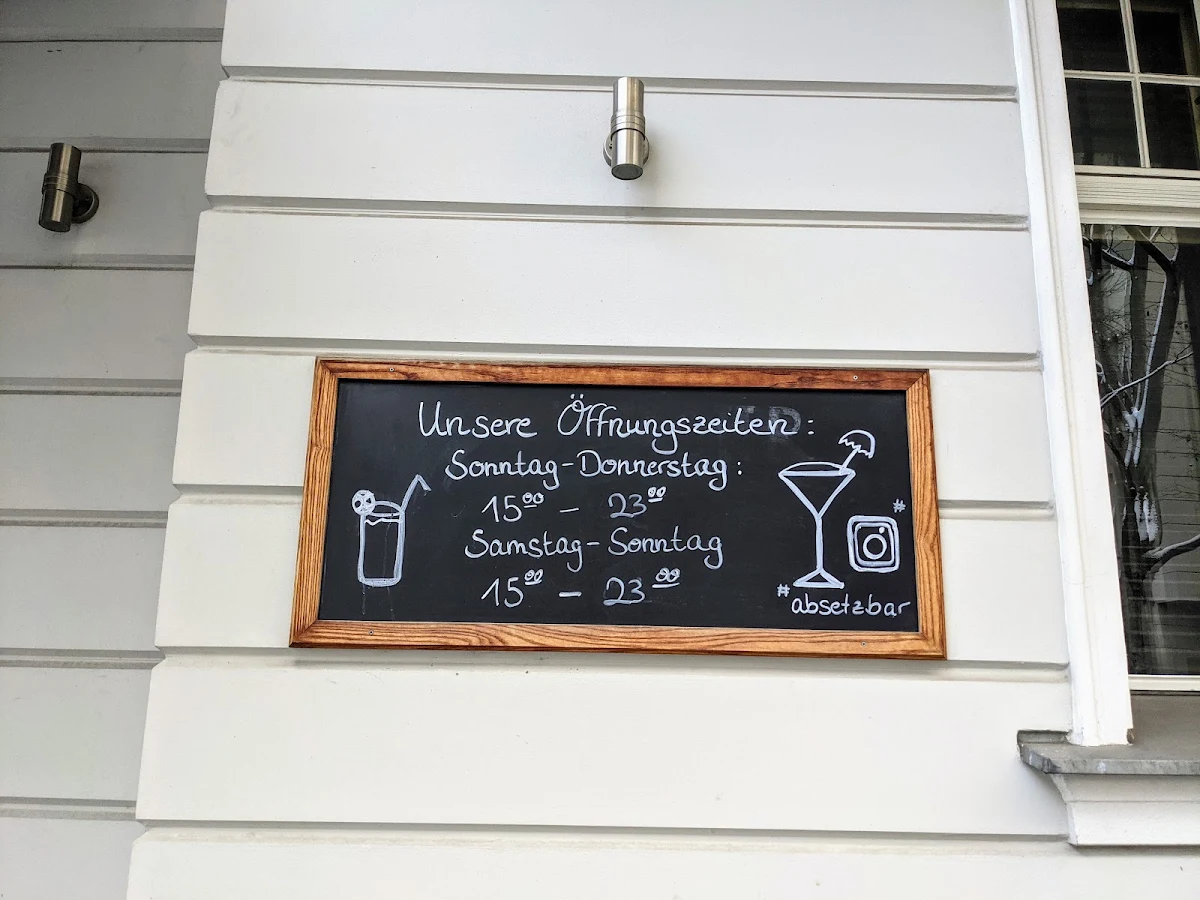 Unsere Öffnungszeiten:
Sonntag-Donnerstag:
15⁰⁰ – 23⁰⁰
Samstag-Sonntag
15⁰⁰ – 23⁰⁰
#
#absetzbar